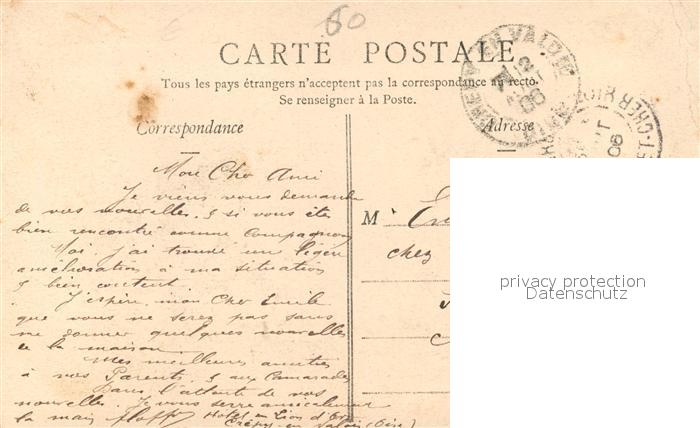 60
CARTE POSTALE
Tous les pays étrangers n'acceptent pas la correspondance au recto.
Se renseigner à la Poste.
Correspondance
Adresse
Mon Cher Ami
Je viens vous demander
de vos nouvelles. & si vous êtes
bien rencontré comme Compagnons
Moi, j'ai trouvé un léger
amélioration à ma situation
& bien content.
J'espère, mon Cher Emile
que vous ne serez pas sans
me donner quelques nouvelles
de la maison.
Mes meilleures amitiés
à vos Parents & aux Camarades
Dans l'attente de vos
nouvelles. Je vous serre amicalement
la main
Hotel du Lion d'Or
Crépy-en Valois (Oise)
M
chez
privacy protection
Datenschutz